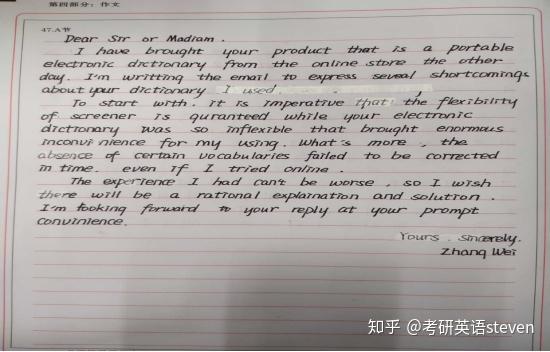 第四部分：作文
47.A节
Dear Sir or Madiam.
I have brought your product that is a portable
electronic dictionary from the online store the other
day. I'm writting the email to express seveal shortcomings
about your dictionary I used.
To start with, it is imperative that the flexibility
of screener is quranteed while your electronic
dictionary was so inflexible that brought enormous
inconvinience for my using. What's more, the
absence of certain vocabularies failed to be corrected
in time. even if I tried online.
The experience I had can't be worse, so I wish
there will be a rational explaination and solution.
I'm fooking forward to your reply at your prompt
convinience.
Yours. Sincerely.
Zhang Wei
知乎 @考研英语steven